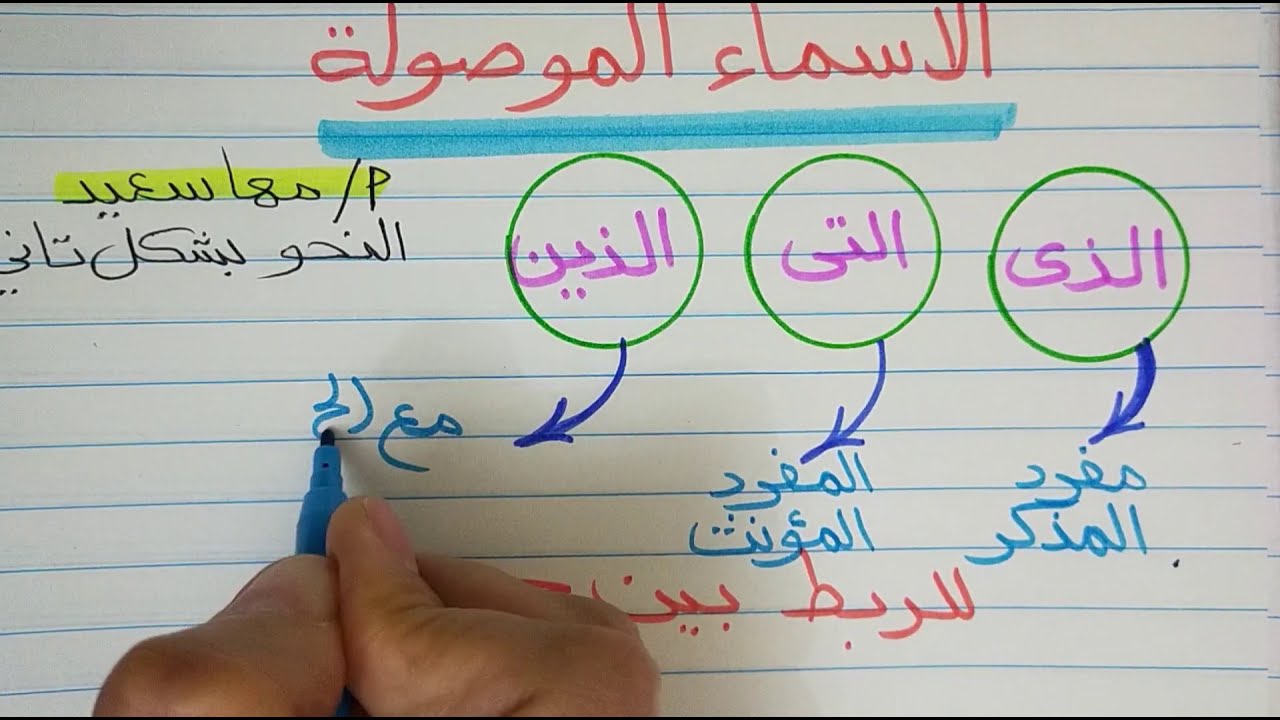 الاسماء الموصولة
م/ مها سعيد
النحو بشكل تاني
الذى التى الذين
مع
مفرد المذكر
المفرد المؤنث
للربط بين